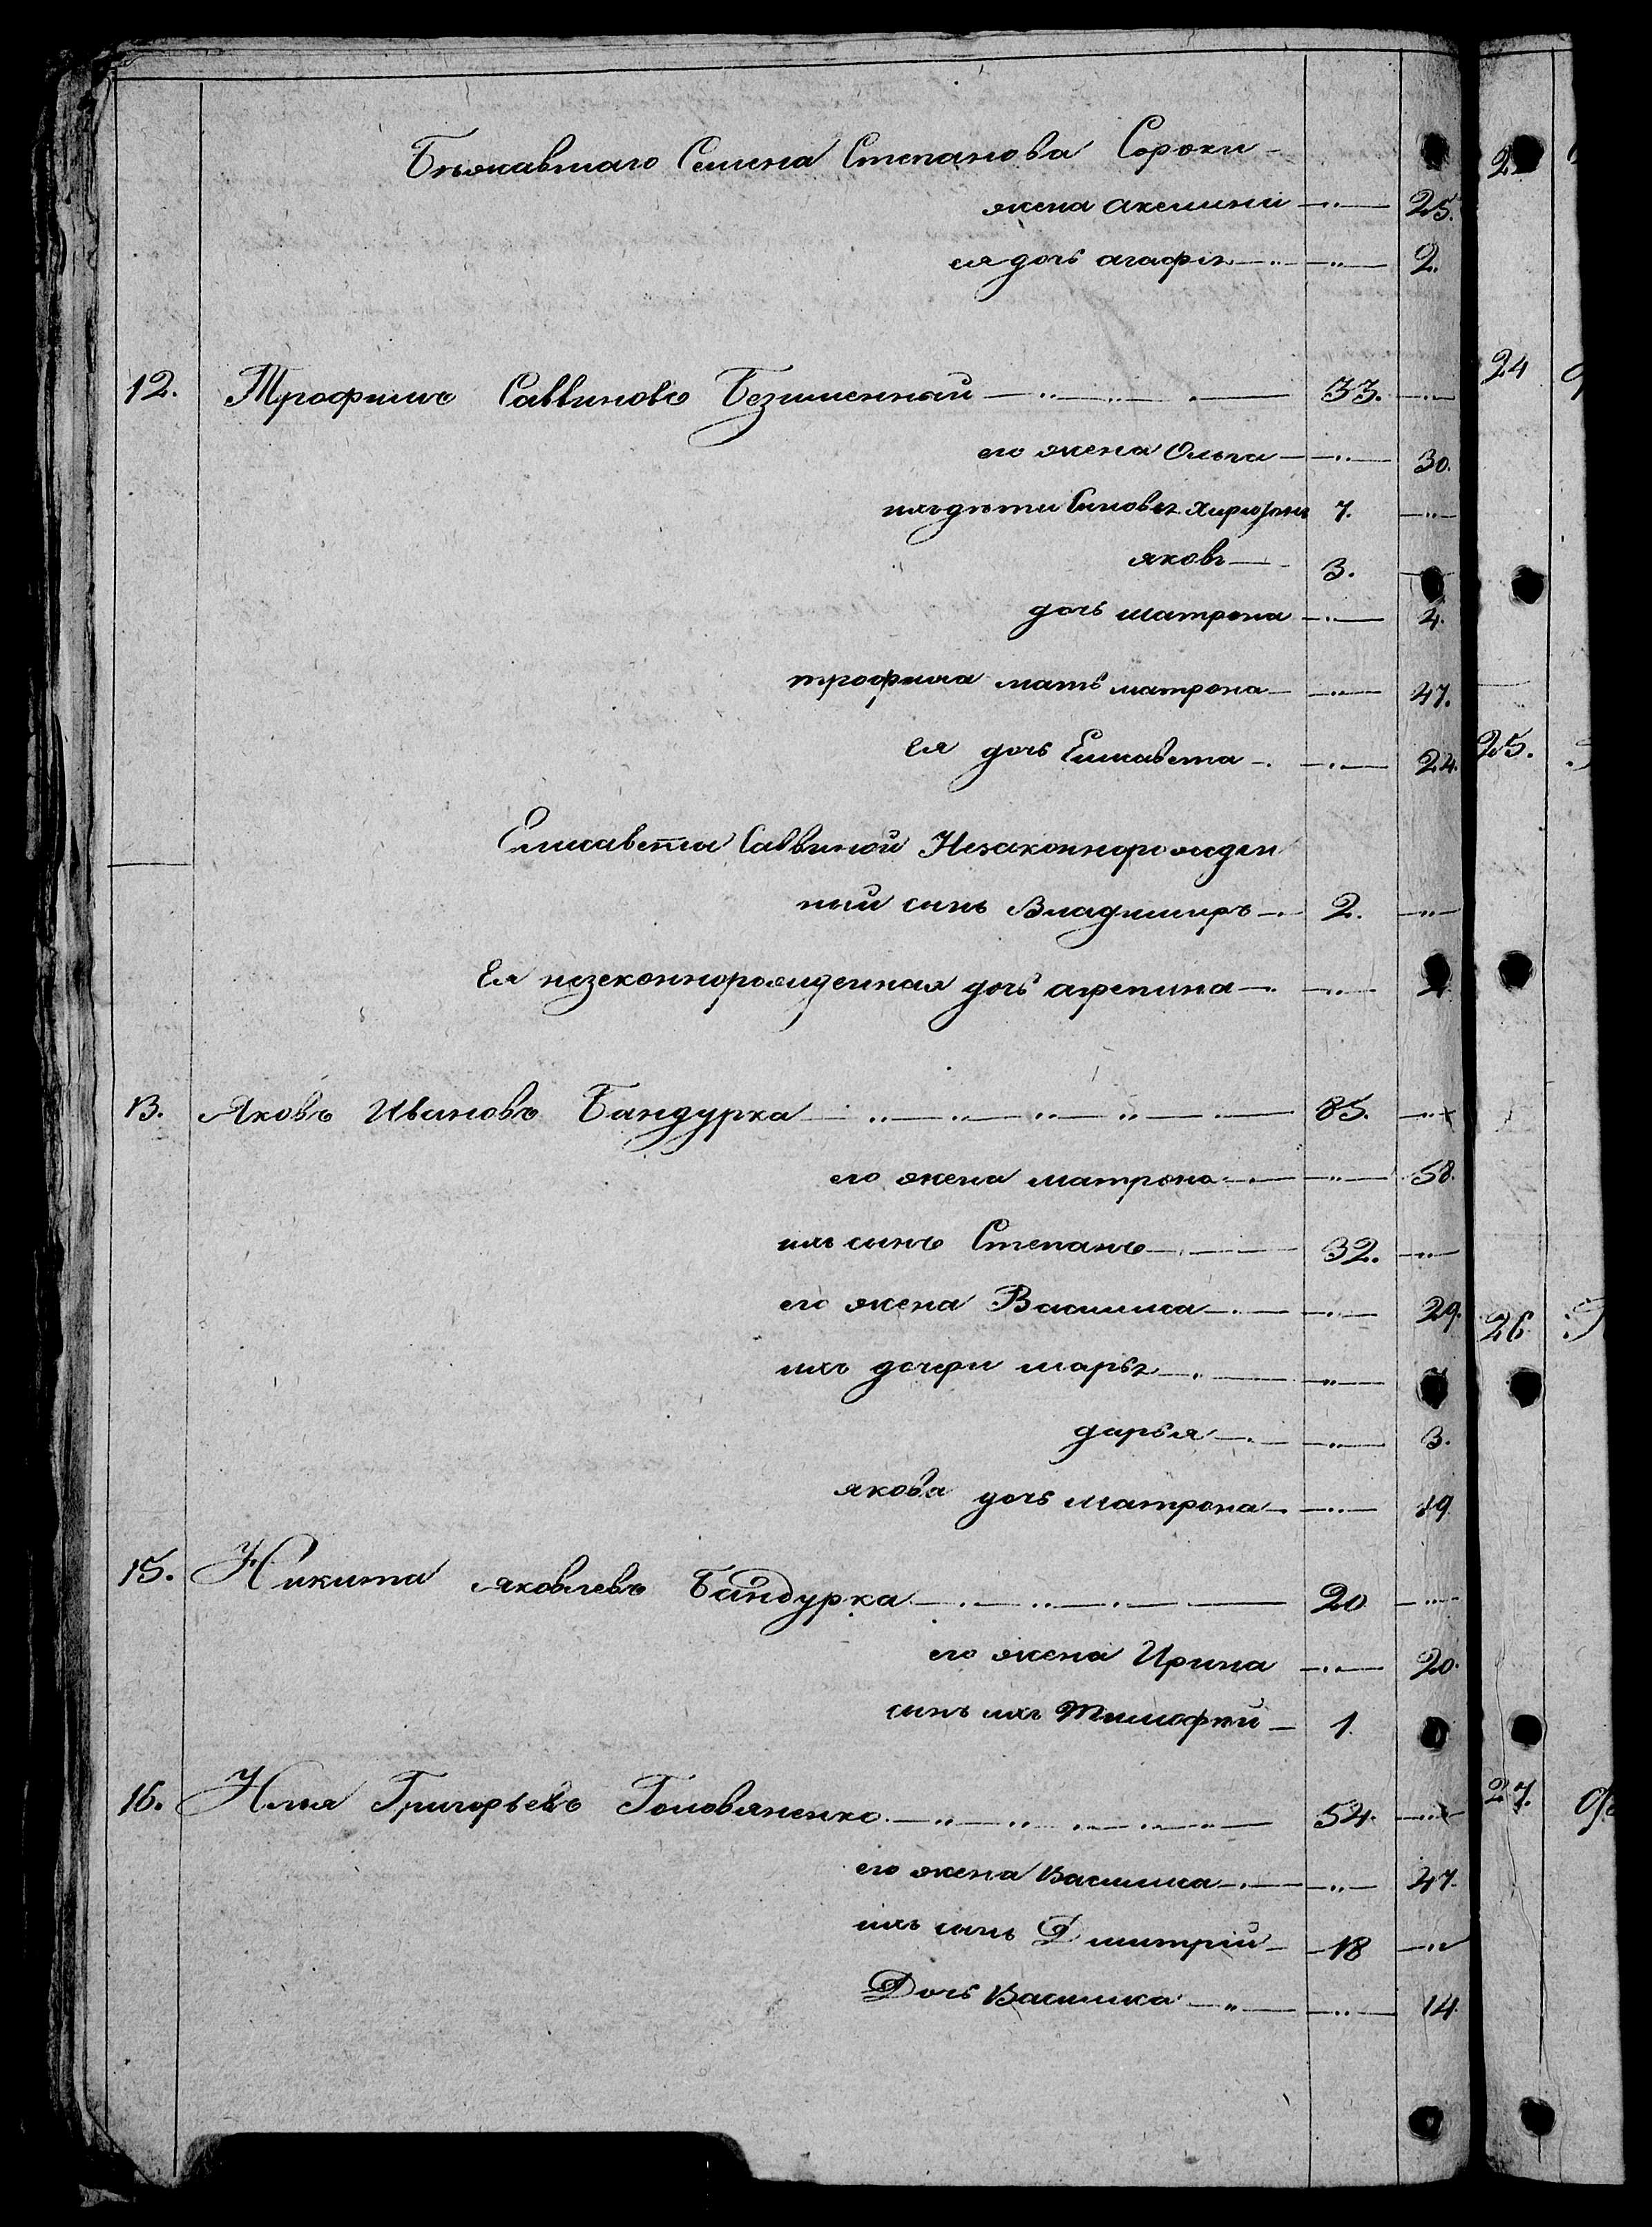 Бѣжавшаго Семена Степанова Сороки
жена акелини 25.
ея дочь агафія 2.
12. Трофимъ Саввиновъ Безименный 33.
его жена Ольга 30.
ихъ дѣти Синовья 7.
яковъ 3.
дочь матрона 4.
трофима мать матрона 47.
Ея дочь Елисавета 24.
Елисавета Саввиной Незаконнорожден
ний синъ Владимиръ 2.
Ея незеконнорожденная дочь агрепина
13. Яковъ Ивановъ Бандурка 85.
его жена матрона 58.
ихъ синъ Степанъ 32.
его жена Василиса 29.
ихъ дочери марья
дарья 3.
якова дочь матрона 19
15. Никита яковлевъ Бандурка 20
его жена Ирина 20.
синъ ихъ Тимофей 1.
16. Илья Григорьевъ Головяненко 54.
его жена Василиса 47.
ихъ синъ Дмитрій 18
Дочь Василиса 14.
24
25.
26
27.